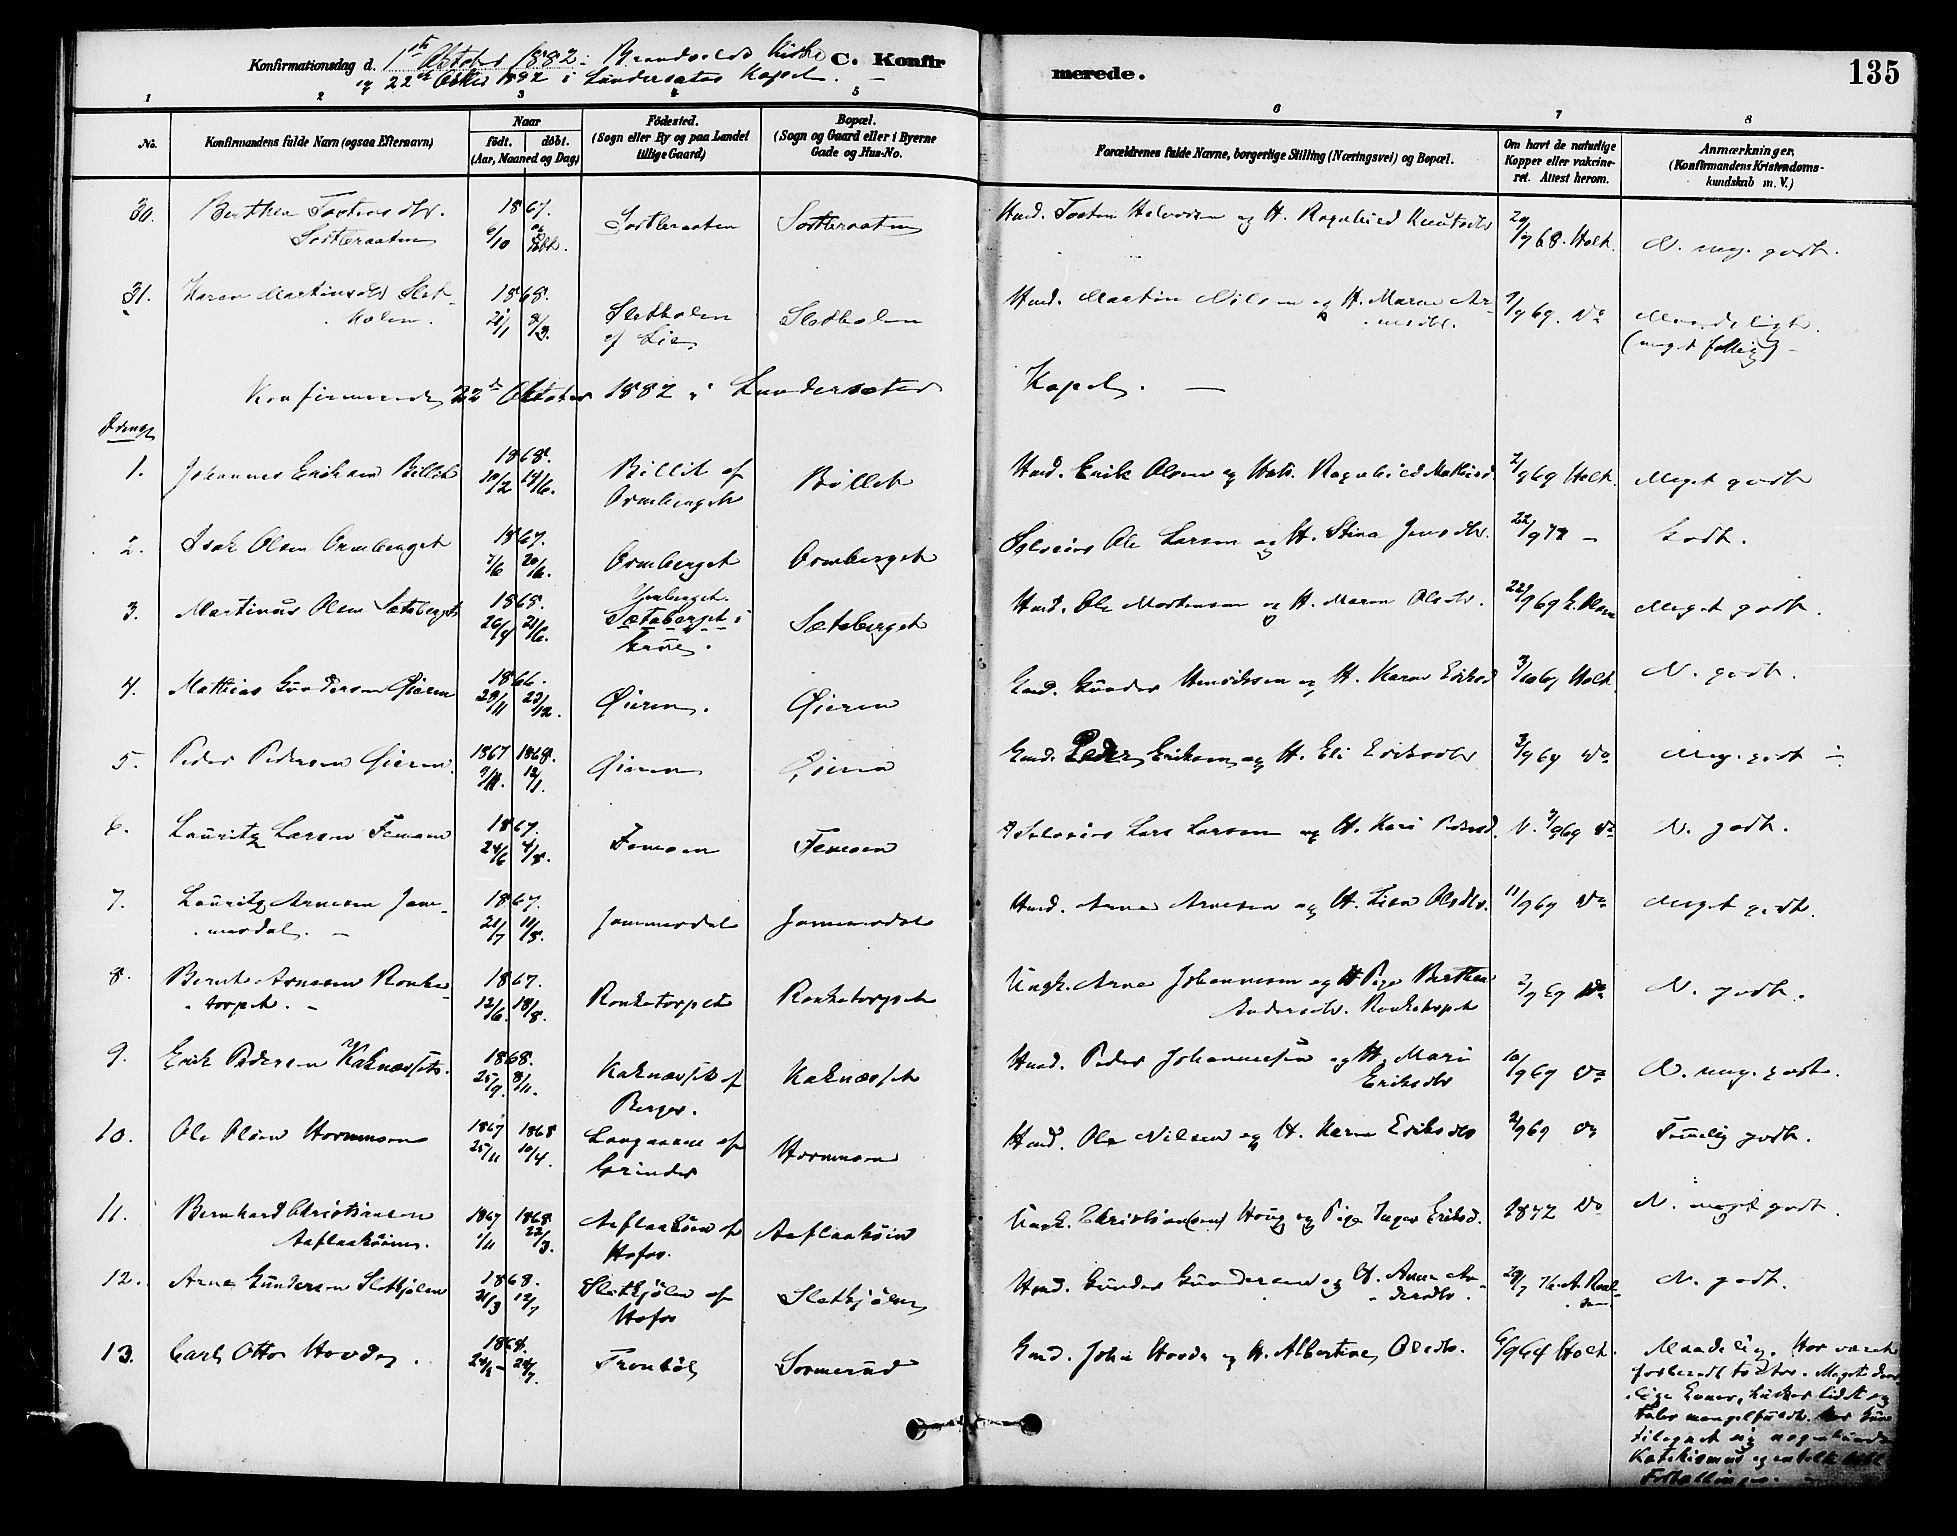 Konfirmationsdag d. 1ste Oktober 1882 i Brandvolds Kirke C. Konfir merede. 135
og 22de Oktbr 1882 i Lundersæter Kapel. —
1 2 3 4 5 6 7 8
No. Konfirmandens fulde Navn (ogsaa Efternavn) Naar født. døbt. (Aar, Maaned og Dag) Fødested. (Sogn eller By og paa Landet tillige Gaard) Bopæl. (Sogn og Gaard eller i Byerne Gade og Hus-No. Forældrenes fulde Navne, borgerlige Stilling (Næringsvei) og Bopæl. Om havt de naturlige Kopper eller vakcineret. Attest herom. Anmærkninger. (Konfirmandens Kristendomskundskab m. V.)
30. Berthea 1867. 6/10 Hmd. Tosten Halvorsen og H. Ragnhild Knutsdtr 68. Holt. N. meg. godt.
31. Karen Martinsdtr Slet-
holen. 1868. 21/1 8/3. Sletholen af Lie Sletholen Hmd. Martin Nilsen og H. Maren 69. Do Maadeligt.
Konfirmerede 22de Oktober 1882 i Lundersæter Kapel. —
Drenge
1. Johannes Eriksen Billit 1868. 10/2 14/6. Billit af Ormberget Billit Hmd. Erik Olsen og Ragnhild 2/9 69 Holt. Meget godt
2. Isak Olsen Ormberget 1867. 7/6 20/6. Ormberget Ormberget Selveier Ole Larsen og H. Stina Jensdtr. 22/9 Godt.
3. Martinus Olsen Sætaberget 1868. 26/4 21/6. Sætaberget i Sætaberget Hmd. Ole Mortensen og H. Maren Olsdtr. 22/9 69 Meget godt.
4. Mathias Gundersen Øieren 1866. 28/11 23/12. Øieren. Øieren Gmd. Gunder Henriksen og H. Karen Eriksd 3/10 69 Holt. N. godt.
5. Peder Pedersen Øieren. 1867 1868. 12/1. Øieren Øieren Gmd. Peder Eriksen og H. Eli Eriksdtr 3/9 69 Do Meg. godt
6. Lauritz Larsen Femoen 1867. 24/6 4/8. Femoen Femoen Selveier Lars Larsen og H. Kari Pedersd. N. 3/9 69 Do N. godt.
7. Lauritz Arnesen Jam-
merdal. — 1867. 21/7 11/8. Jammerdal Jammerdal Hmd. Arne Arnesen og H. Lisa Olsdtr. 11/9 69 Do Meget godt.
8. Bernt Arnesen Ronke-
torpet. — 1867. 12/6. 18/8. Ronketorpet Ronketorpet Ungk. Arne Johannesen og Pige Berthea
Andersdtr. Ronketorpet 2/9 69 Do N. godt.
9. Erik Pedersen Kaknæsset. 1868. 25/9. 8/11. Kaknæsset af Berger. Kaknæsset Hmd. Peder Johannesen og H. Mari
Eriksdtr 10/9 69 Do N. meg. godt.
10. Ole Olsen Hornmoen 1867 1868 25/11 10/4. Langaasen af Grinder Hornmoen Hmd. Ole Nilsen og H. Karen Eriksdtr 2/9 69 Do Temelig godt.
11. Bernhard Christiansen
Aaflaakøien. 1867 1868 1/11 22/3. Aaflaakøien af Hofos. Aaflaakøien Ungk. Christian Houg og Pige Inger Eriksd. 1872 Do N. meget godt.
12. Arne Gundersen Sletkjølen 1868. 21/3 12/7 Sletkjølen af Hofos Sletkjølen Hmd. Gunder Gundersen og H. Anne An-
dersdtr. N. godt.
13. Carl Otto Hovde. 1864. 24/5 24/7. Tronbøl Sormerud Gmd. Johan Hovde og H. Albertine Olsdtr. 6/9 64 Holt. Maadelig. Har været
forberedt to Aar. Meget daar-
lige Evner, husker lidet og
taler mangelfuldt. Har kun
tilegnet sig nogenlunde
Katekismus og enkelte bibl.
Fortællinger. —